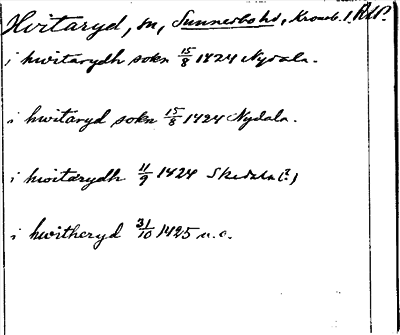 Hvitaryd, sn, Sunnerbo hd, Kronob. l, RAP.
i hwitarydh sokn 15/8 1424 Nydala.
i hwitaryd sokn 15/8 1424 Nydala.
i hwitarydh 11/9 1424 Skedala (?)
i hwitheryd 31/10 1425 u. o.